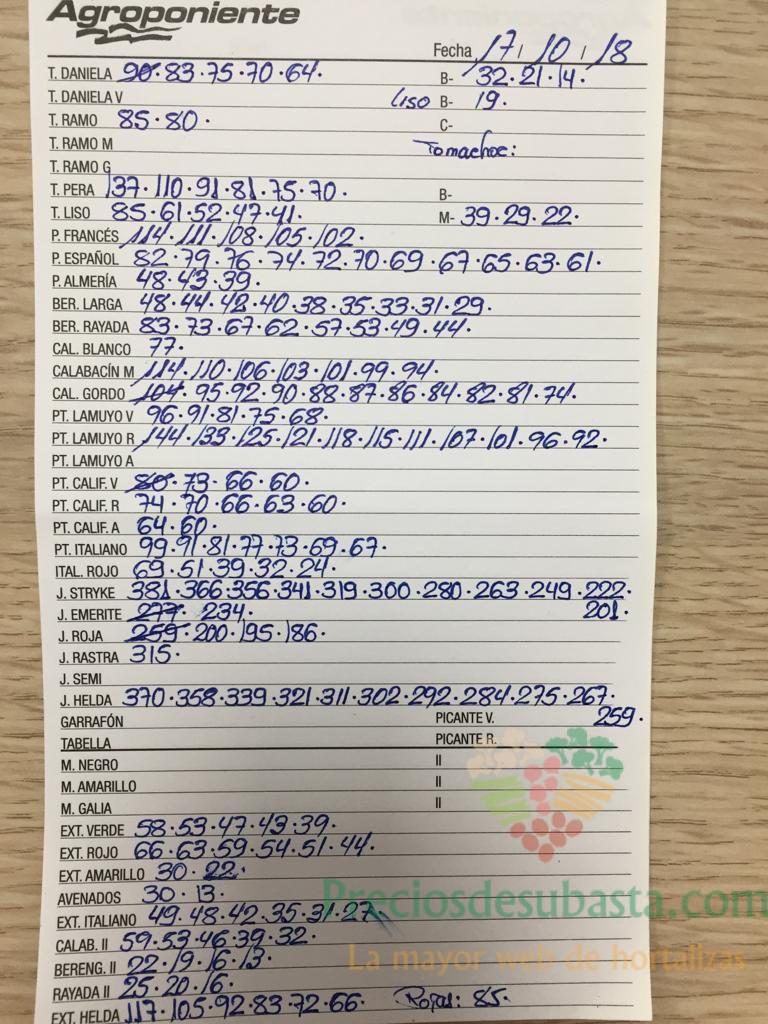 Agroponiente
Fecha 17 / 10 / 18
T. DANELA 90·83·75·70·64· B- 32·21·14·
T. DANIELA V Liso B- 19·
T. RAMO 85·80· C-
T. RAMO M Tomachoc:
T. RAMO G
T. PERA 137·110·91·81·75·70· B-
T. LISO 85·61·52·47·41· M- 39·29·22·
P. FRANCÉS 114·111·108·105·102·
P. ESPAÑOL 82·79·76·74·72·70·69·67·65·63·61·
P. ALMERÍA 48·43·39·
BER. LARGA 48·44·42·40·38·35·33·31·29·
BER. RAYADA 83·73·67·62·57·53·49·44·
CAL. BLANCO 77·
CALABACÍN M 114·110·106·103·101·99·94·
CAL. GORDO 104·95·92·90·88·87·86·84·82·81·74·
PT. LAMUYO V 96·91·81·75·68·
PT. LAMUYO R 144·133·125·121·118·115·111·107·101·96·92·
PT. LAMUYO A
PT. CALIF. V 80·73·66·60·
PT. CALIF. R 74·70·66·63·60·
PT. CALIF. A 64·60·
PT. ITALIANO 99·91·81·77·73·69·67·
ITAL. ROJO 69·51·39·32·24·
J. STRYKE 381·366·356·341·319·300·280·263·249·222·
J. EMERITE 277·234· 201·
J. ROJA 259·200·195·186·
J. RASTRA 315·
J. SEMI
J. HELDA 370·358·339·321·311·302·292·284·275·267·
GARRAFÓN PICANTE V. 259·
TABELLA PICANTE R.
M. NEGRO II
M. AMARILLO II
M. GALIA II
EXT. VERDE 58·53·47·43·39·
EXT. ROJO 66·63·59·54·51·44·
EXT. AMARILLO 30·22·
AVENADOS 30·13·
Preciosdesubasta.com
EXT. ITALIANO 49·48·42·35·31·27
CALAB. II 59·53·46·39·32·
La mayor web de hortalizas
BERENG. II 22·19·16·13·
RAYADA II 25·20·16·
EXT. HELDA 117·105·92·83·72·66· Rojas: 85·